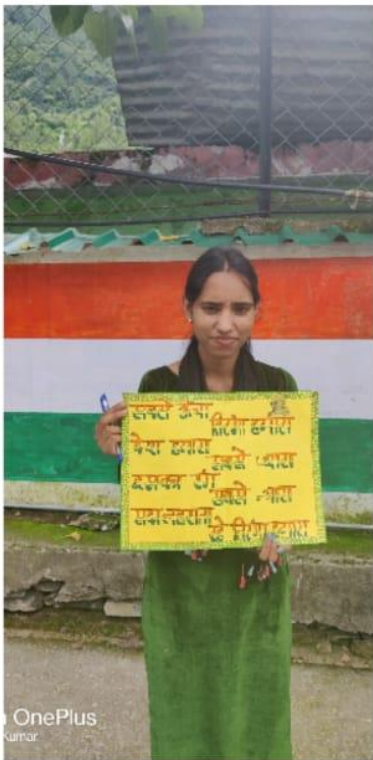 सबसे ऊँचा
तिरंगा हमारा
देश हमारा
सबसे प्यारा
रंग
सबसे न्यारा
सदा लहराता
रहे तिरंगा हमारा
OnePlus
Kumar